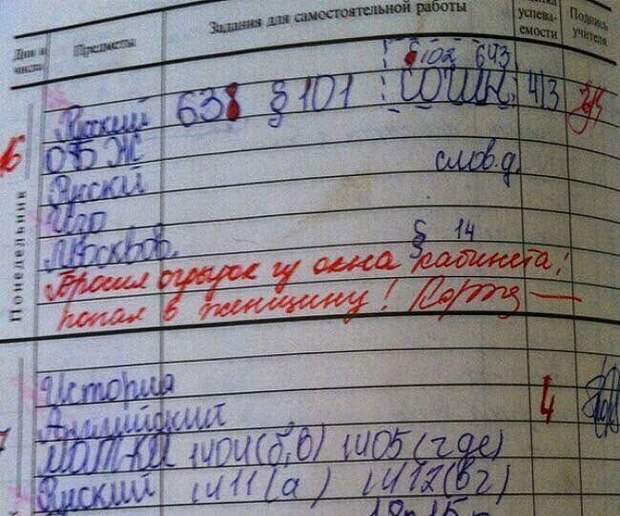 Дни и числа Предметы Задания для самостоятельной работы успева-емости Подпись учителя
§102 643
Русский 638 §101 СОЧИН. 4/3
16 ОБЖ
Русский слов.д.
Изо
Москвов. § 14
Понедельник
Бросил огрызок из окна кабинета,
попал в женщину!
История
Английский 4
МАТ-КА 1404(б,в) 1405(где)
Русский 1411(а) 1412(вг)